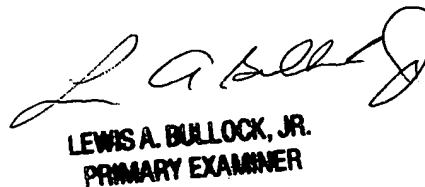 L A Bullock Jr
LEWIS A. BULLOCK, JR.
PRIMARY EXAMINER